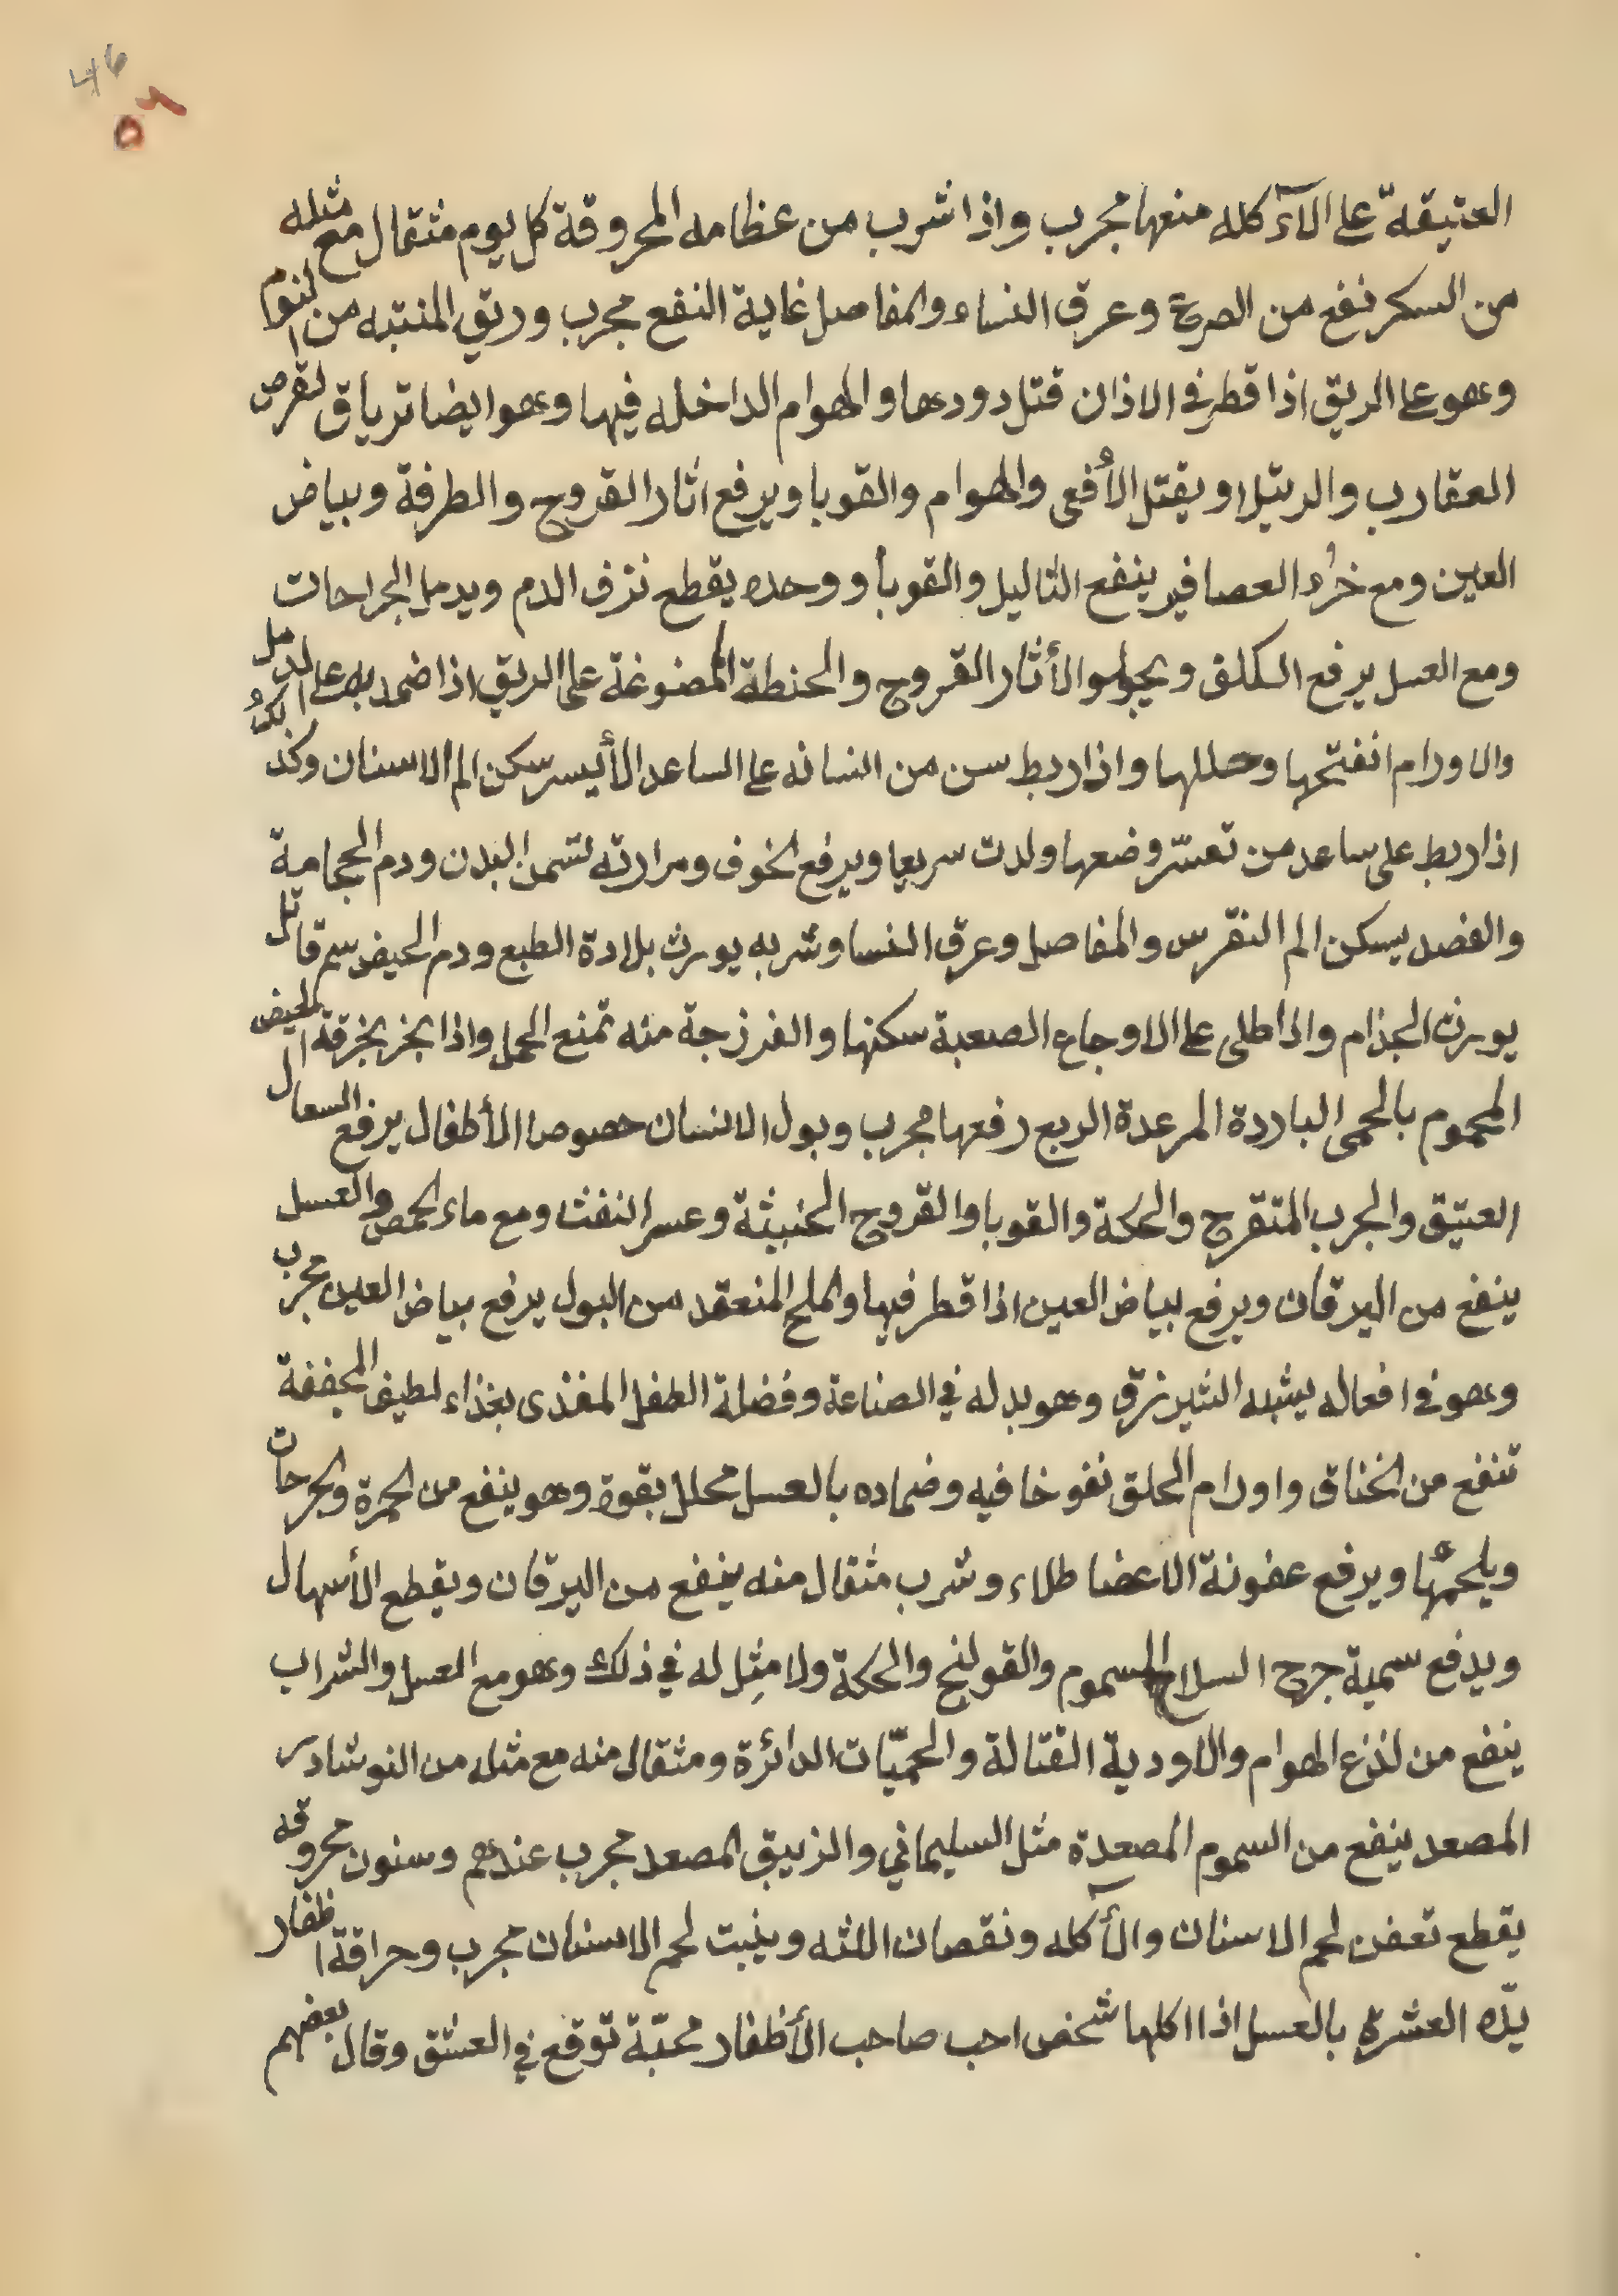 46
٥٢
العتيقة على الآكله منعها مجرب واذا شرب من عظامه المحروقة كل يوم مثقال مع مثله
من السكر نفع من الصرع وعرق النساء والمفاصل غاية النفع مجرب وريق المنتبه من النوم
وهو على الريق اذا قطر في الاذان قتل دودها والهوام الداخله فيها وهو ايضا ترياق لقرص
العقارب والرتيلا ويقتل الأفعى والهوام والقوبا ويرفع اثار القروح والطرفة وبياض
العين ومع خرُء العصافير ينفع الثاليل والقوبأ ووحده يقطع نزف الدم ويدمل الجراحات
ومع العسل يرفع الكلف ويجلو الأثار القروح والحنطة الممضوغة على الريق اذا ضمد به على الدمل
والاورام انفتحها وحللها واذا ربط سن من انسانه على الساعد الأيسر سكن الم الاسنان وكذلك
اذا ربط على ساعد من تعسّر وضعها ولدت سريعا ويرفع الخوف ومرارته تسمن البدن ودم الحجامية
والفصد يسكن الم النقرس والمفاصل وعرق النسا وشربه يورث بلادة الطبع ودم الحيض سم قاتل
يورث الجذام واذا طلى على الاوجاع الصعبة سكنها والفرزجة منه تمنع الحمل واذا بخر بخرقة الحيض
المحموم بالحمى الباردة المرعدة الربع رفعها مجرب وبول الانسان خصوصا الأطفال يرفع السعال
العتيق والجرب المتقرح والحكة والقوبا والقروح الخبيثة وعسر النفث ومع ماء الحمص والعسل
ينفع من اليرقان ويرفع بياض العين اذا قطر فيها والملح المنعقد من البول يرفع بياض العين مجرب
وهو في افعاله يشبه الشيرزق وهو بدله في الصناعة وفضلة الطفل المغذى بغذاء لطيف المجففة
تنفع من الخناق واورام الحلق نفوخا فيه وضماده بالعسل محلل بقوة وهو ينفع من الحمرة والجرحات
ويلحمّها ويرفع عفونة الاعضا طلاء وشرب مثقال منه ينفع من اليرقان ويقطع الأسهال
ويدفع سمية جرح السلاح المسموم والقولنج والحكة ولا مثِل له في ذلك وهو مع العسل والشراب
ينفع من لذع الهوام والاودية القتالة والحميّات الدائرة ومثقال منه مع مثله من النوشادر
المصعد ينفع من السموم المصعدة مثل السليماني والزيبق المصعد مجرب عندهم وسنون محروقه
يقطع تعفن لحم الاسنان والأكله ونقصان اللثه وينبت لحم الاسنان مجرب وحراقة اظفار
يدّه العشرة بالعسل اذا اكلها شخص احب صاحب الأظفار محبّة توقع في العشق وقال بعضهم